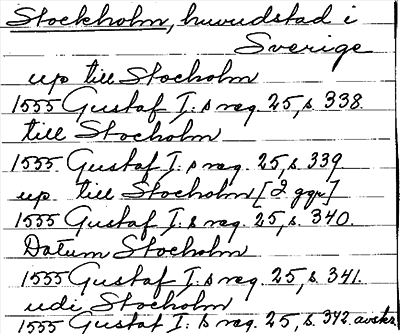 Stockholm, huvudstad i
Sverige
up till Stocholm
1555 Gustaf I:s reg. 25, s. 338.
till Stocholm
1555 Gustaf I:s reg. 25, s. 339
up till Stocholm [2 ggr]
1555 Gustaf I:s reg. 25, s. 340.
Datum Stocholm
1555 Gustaf I:s reg. 25, s. 341.
udi Stocholm
1555 Gustaf I:s reg. 25, s. 342. avskr.